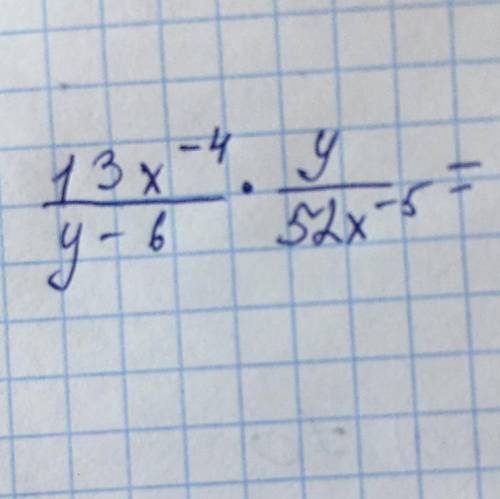 13x⁻⁴ / y - 6 · y / 52x⁻⁵ =